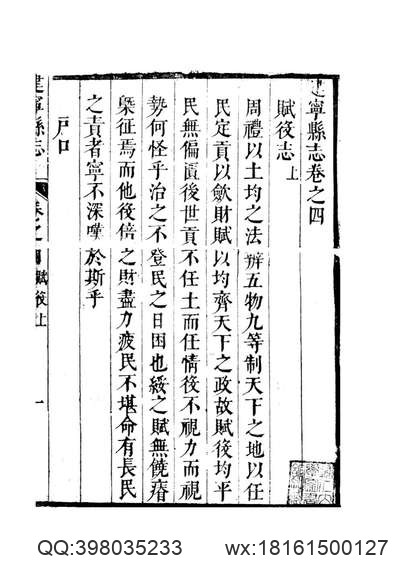 建寧縣志卷之四
賦役志上
周禮以土均之法辨五物九等制天下之地以任
民定貢以歛財賦以均齊天下之政故賦役均平
民無偏匱後世貢不任土而任情役不視力而視
勢何怪乎治之不登民之日困也綏之賦無饒瘠
槩征焉而他役倍之財盡力疲民不堪命有長民
之責者寧不深嘆於斯乎
戶口
建寧縣志
卷之四賦役上
一
QQ:398035233
wx:18161500127